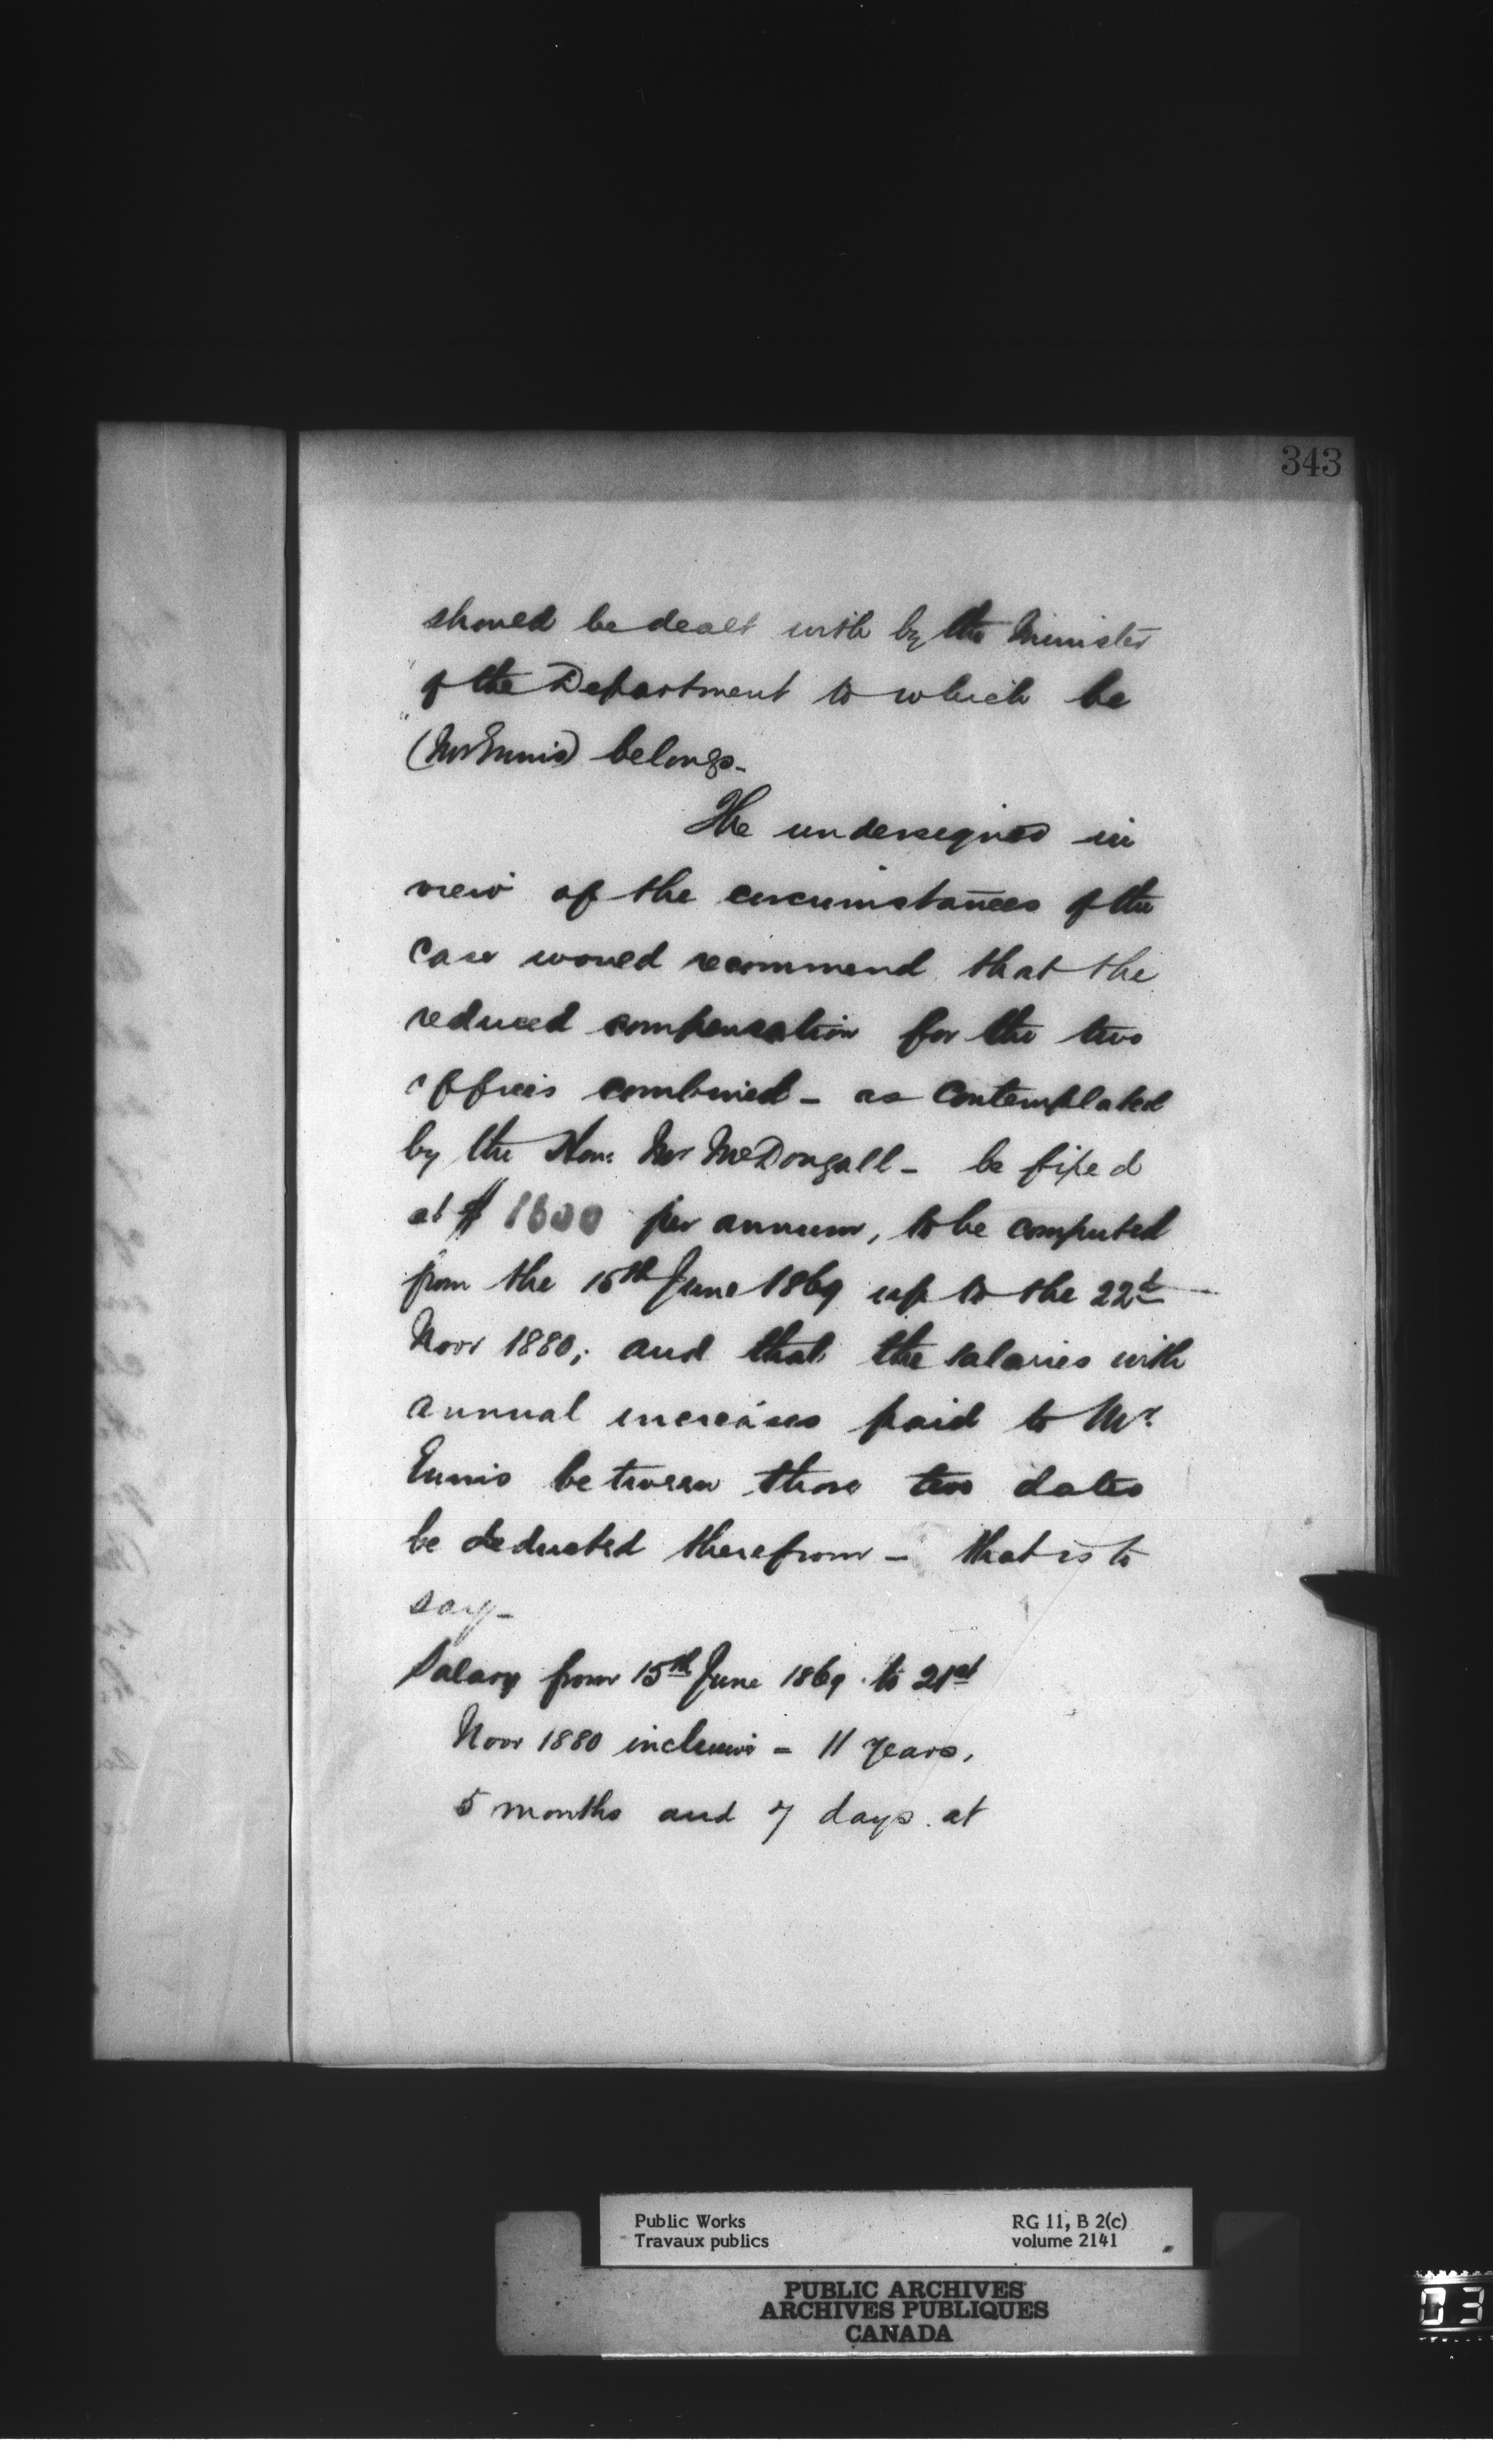 343
should be dealt with by the Minister
of the Department to which he
(Mr Ennis) belongs.
The undersigned in
view of the circumstances of the
case would recommend that the
reduced compensation for the two
offices combined - as contemplated
by the Hon: Mr McDougall - be fixed
at $ 1600 per annum, to be computed
from the 15th June 1869 up to the 22d
Novr 1880; and that the salaries with
annual increases paid to Mr
Ennis between those two dates
be deducted therefrom - that is to
say -
Salary from 15th June 1869 to 21st
Novr 1880 inclusive - 11 years,
5 months and 7 days at
Public Works
Travaux publics
RG 11, B 2(c)
volume 2141
PUBLIC ARCHIVES
ARCHIVES PUBLIQUES
CANADA
03